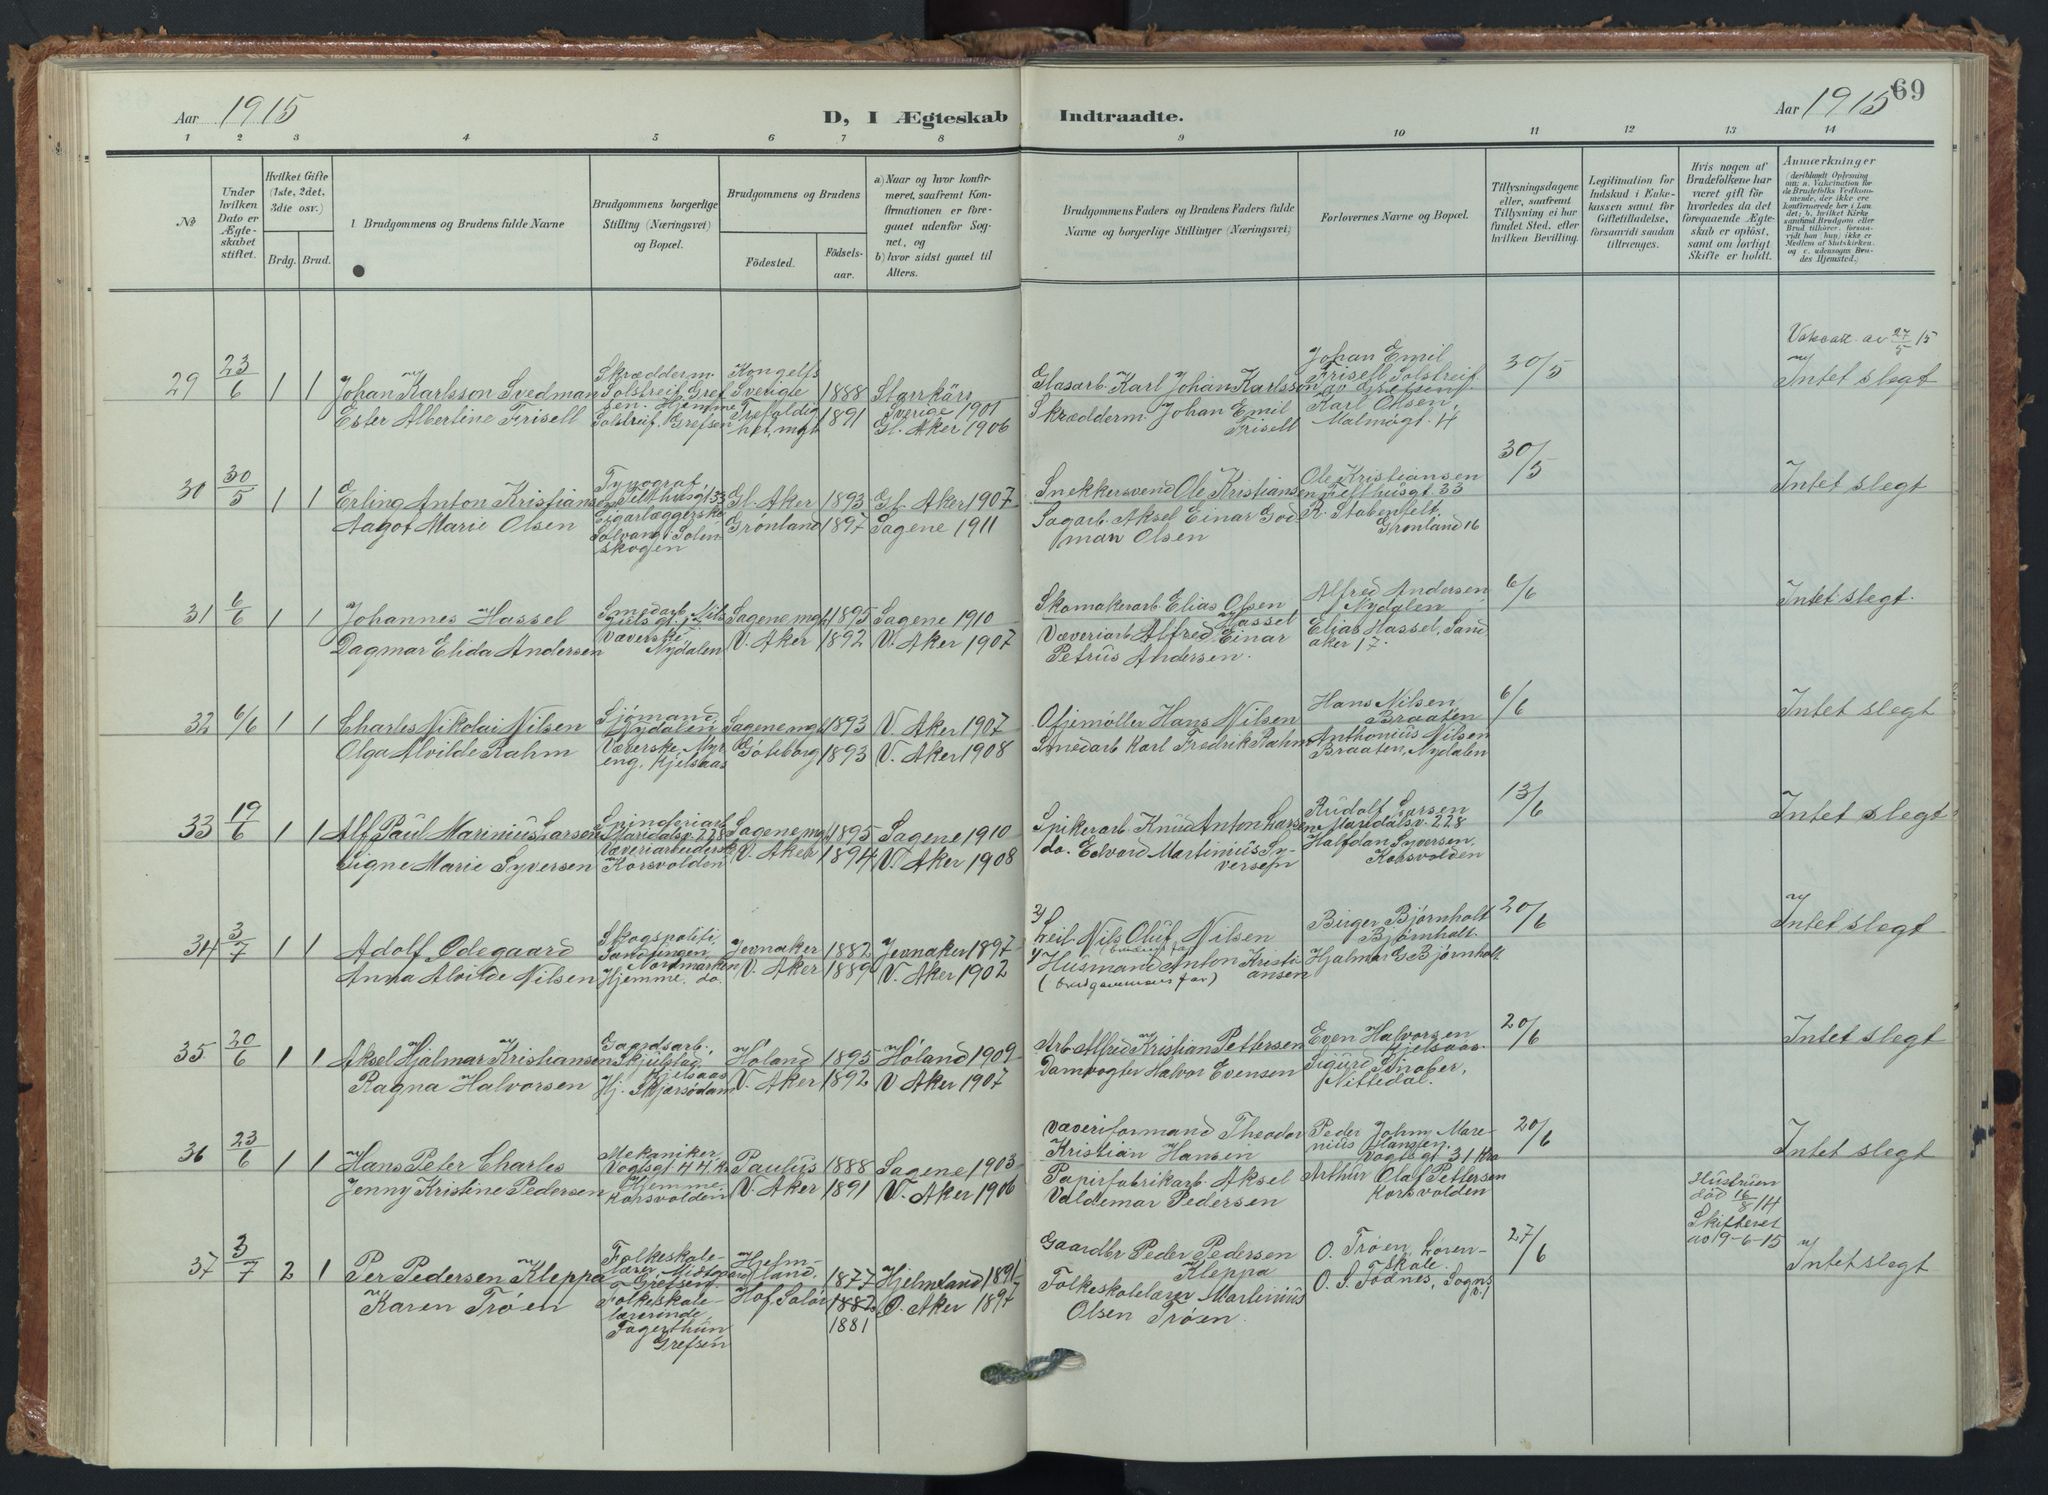 Aar 1915
D, I Ægteskab Indtraadte.
Aar 1915
69
1 2 3 4 5 6 7 8 9 10 11 12 13 14
№
Under hvilken Dato er Ægteskabet stiftet.
Hvilket Gifte (1ste, 2det, 3die osv.)
Brdg. Brud.
Brudgommens og Brudens fulde Navne
Brudgommens borgerlige Stilling (Næringsvei) og Bopæl.
Brudgommens og Brudens
Fødested.
Fødselsaar.
a) Naar og hvor konfirmeret, saafremt Konfirmationen er foregaaet udenfor Sognet, og
b) hvor sidst gaaet til Alters.
Brudgommens Faders og Brudens Faders fulde Navne og borgerlige Stillinger (Næringsvei)
Forlovernes Navne og Bopæl.
Tillysningsdagene eller, saafremt Tillysning ei har fundet Sted, efter hvilken Bevilling.
Legitimation for Indskud i Enkekassen samt for Giftetilladelse, forsaavidt saadan tiltrænges.
Hvis nogen af Brudefolkene har været gift før hvorledes da det foregaaende Ægteskab er opløst, samt om lovligt Skifte er holdt.
Anmærkninger (deriblandt Oplysning om: a. Vakcination for de Brudefolks Vedkommende, der ikke ere konfirmerede her i Landet; b. hvilket Kirkesamfund Brudgom eller Brud tilhører, forsaavidt han (hun) ikke er Medlem af Statskirken, og c. udensogns Brudes Hjemsted.)
29 23/6 1 1
Johan Karlsson Svedman
Ester Albertine Frisell
Skrædderm. Solstreif Grefsen. Hjemme Solstreif, Grefsen
Kongelfs Sverige 1888
Trefoldighet, mgt 1891
Starrkärr Sverige 1901
Gl. Aker 1906
Glasarb. Karl Johan Karlsson
Skrædderm. Johan Emil Frisell
Johan Emil Frisell Solstreif av Grefsen,
Karl Olsen, Malmøgt. 4
30/5
Vakcat. av 27/5 15
Intet slegt
30 30/5 1 1
Erling Anton Kristiansen
Aagot Marie Olsen
Typograf Felthusgt 33
Cigarlæggerske Solvang i Solemskogen
Gl. Aker 1893 Gl. Aker 1907
Grønland 1897 Sagene 1911
Snekkersvend Ole Kristiansen
Sagarb. Aksel Einar Godman Olsen
Ole Kristiansen Felthusgt. 33
R. Stabenfelt, Grønland 16
30/5
Intet slegt
31 6/6 1 1
Johannes Hassel
Dagmar Elida Andersen
Smedarb. Nils
Væverske, Nydalen
Sagene mgh 1895 Sagene 1910
V. Aker 1892 V. Aker 1907
Skomakerarb. Elias Olsen Hassel
Væveriarb. Alfred Einar Petrus Andersen.
Alfred Andersen Nydalen
Elias Hassel, Sandaker 17.
6/6
Intet slegt.
32 6/6 1 1
Charles Nikolai Nilsen
Olga Alvilde Rahm
Sjømand, Nydalen
Væverske, Myreng, Kjelsaas
Sagene mgh 1893 V. Aker 1907
Göteborg 1893 V. Aker 1908
Oljemøller Hans Nilsen
Smedarb. Karl Fredrik Rahm
Hans Nilsen, Braaten
Anthonius Nilsen Braaten, Nydalen
6/6
Intet slegt
33 19/6 1 1
Alf Paul Marinius Larsen
Signe Marie Syversen
Spinderiarb. Maridalsv. 228
Væveriarbeiderske Korsvolden
Sagene mgh 1895 Sagene 1910
V. Aker 1894 V. Aker 1908
Spikerarb. Knud Anton Larsen
do. Edvard Martinius Syversen
Rudolf Larsen Maridalsv. 228
Halfdan Syversen, Korsvolden
13/6
Intet slegt
34 3/7 1 1
Adolf Ødegaard
Anna Alvilde Nilsen
Skogspoliti, Sandungen Nordmarken
Hjemme, do.
Jevnaker 1882 Jevnaker 1897
V. Aker 1889 V. Aker 1902
2) Leil. Nils Oluf Nilsen
(brudens far)
1) Husmand Anton Kristiansen
(brudgommens far)
Birger Bjørnholt Bjørnholt.
Hjalmar G. Bjørnholt
20/6
Intet slegt
35 20/6 1 1
Aksel Hjalmar Kristiansen
Ragna Halvorsen
Gaardsarb., Skjulstad, Kjelsaas
Hj. Skjærsødam
Høland 1895 Høland 1909
V. Aker 1892 V. Aker 1907
Arb. Alfred Kristian Pettersen
Damvogter Halvor Evensen
Even Halvorsen Kjelsaas.
Sigurd Sinober, Nittedal.
20/6
Intet slegt
36 23/6 1 1
Hans Peter Charles
Jenny Kristine Pedersen
Mekaniker. Vogtsgt. 44 Kr.
Hjemme. Korsvolden
Paulus 1888 Sagene 1903
V. Aker 1891 V. Aker 1906
Væveriformand Theodor Kristian Hansen
Papirfabrikarb. Aksel Valdemar Pedersen
Peder Johm. Marenius Hansen. Vogtsgt 31 Kra
Arthur Olaf Pettersen Korsvolden
20/6
Intet slegt
37 3/7 2 1
Per Pedersen Kleppa
Karen Trøen
Folkeskolelærer Grefsen
Folkeskolelærerinde, Fagerthun Grefsen
Hjelmeland, 1877 Hjelmeland 1891
Hof, Solør 1882 1881 Ø. Aker 1897
Gaardbr. Peder Pedersen Kleppa
Folkeskolelærer Martinius Olsen Trøen.
O. Trøen, Lørenskole.
O. S. Fodnes,
27/6
Hustruen død 16/8 14
Skifteret av 9-6-15
Intet slegt